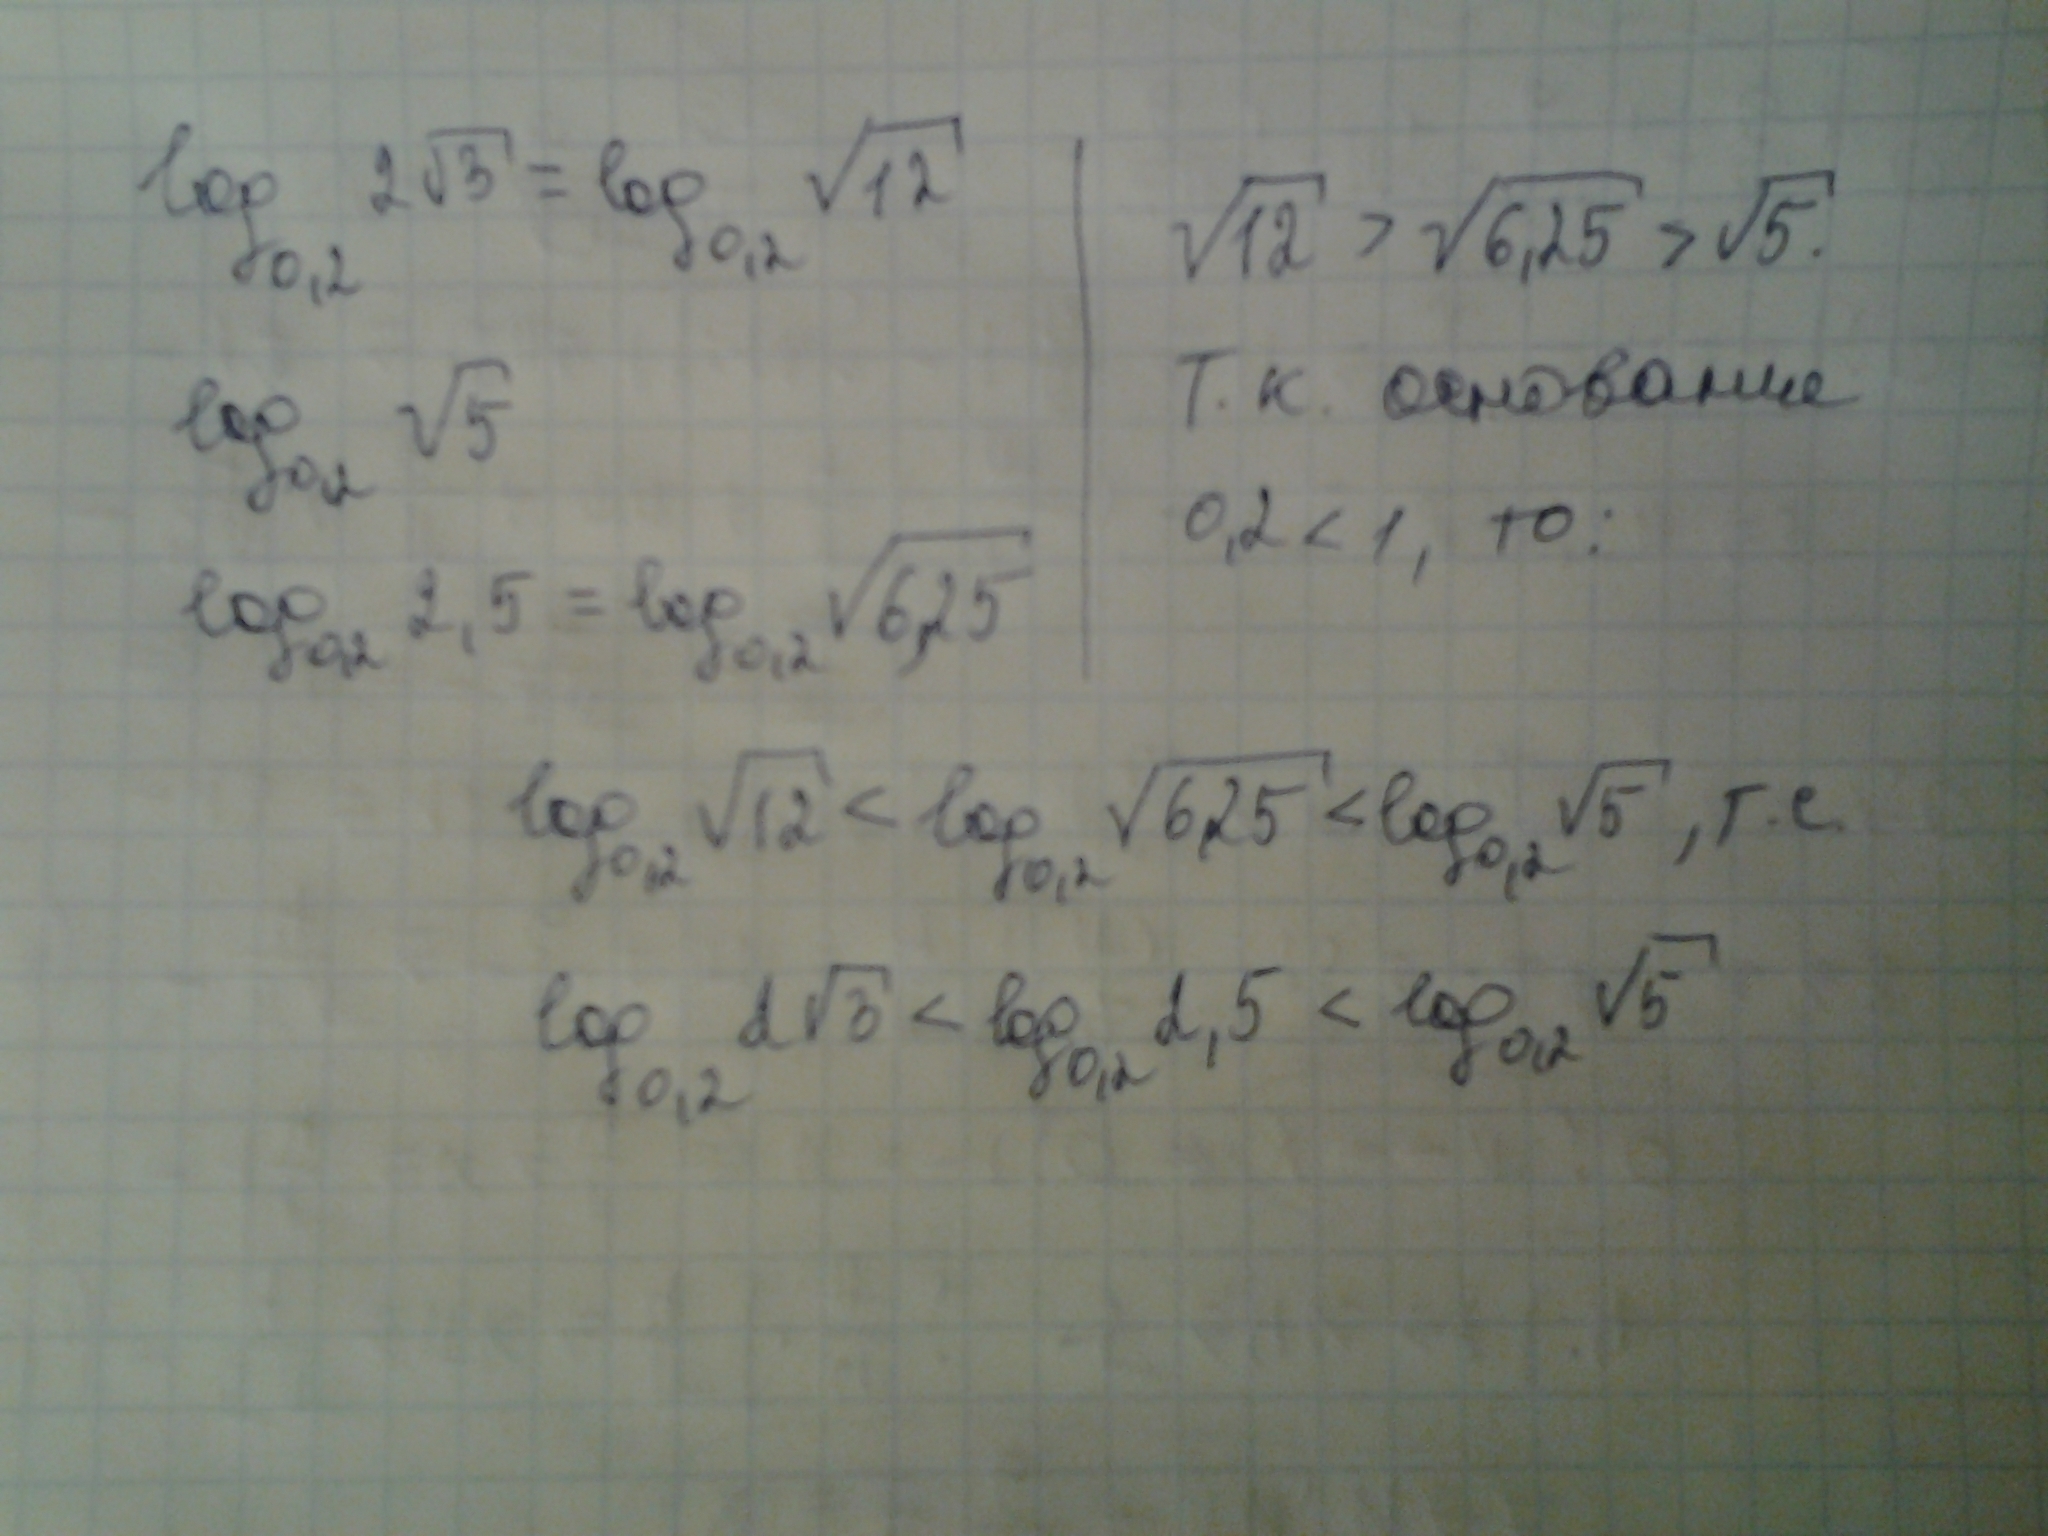 log₀,₂ 2√3 = log₀,₂ √12
log₀,₂ √5
log₀,₂ 2,5 = log₀,₂ √6,25
√12 > √6,25 > √5.
Т.к. основание
0,2 < 1, то:
log₀,₂ √12 < log₀,₂ √6,25 < log₀,₂ √5, т.е.
log₀,₂ 2√3 < log₀,₂ 2,5 < log₀,₂ √5